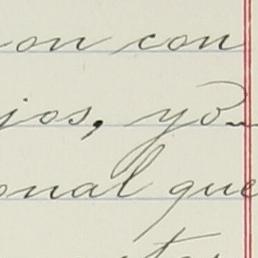 on con
ios, yo
onal que